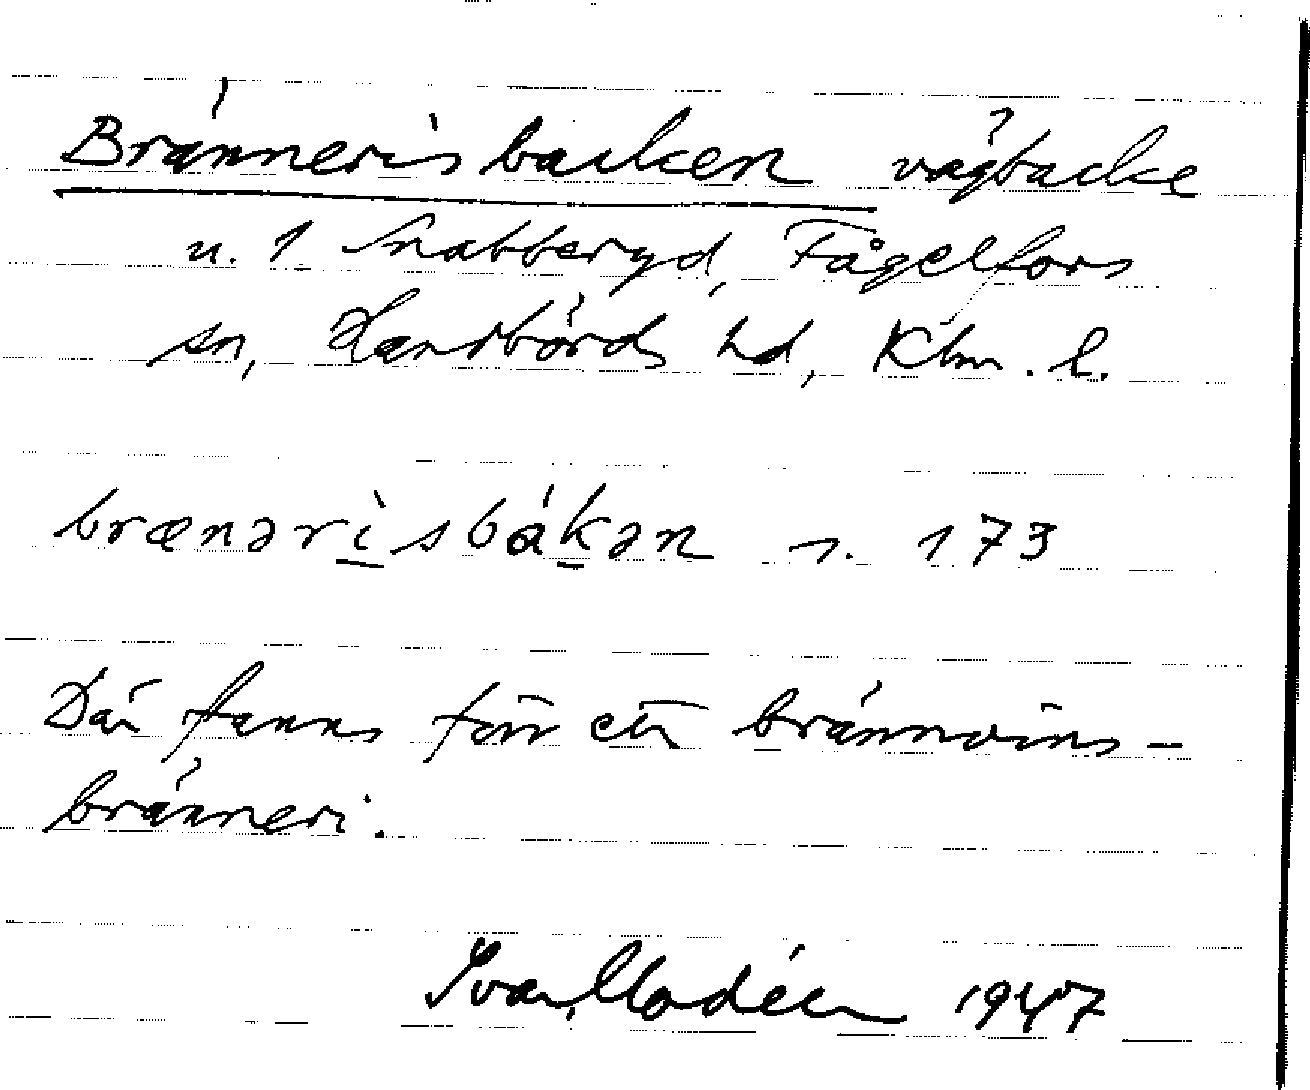 Brännerisbacken vägbacke
u. 1 Snabberyd, Fågelfors
sn, Handbörds hd, Klm. l.
brænərisbákən s. 173
Där fanns förr ett brännvins-
bränneri.
Ivar Modéer 1947